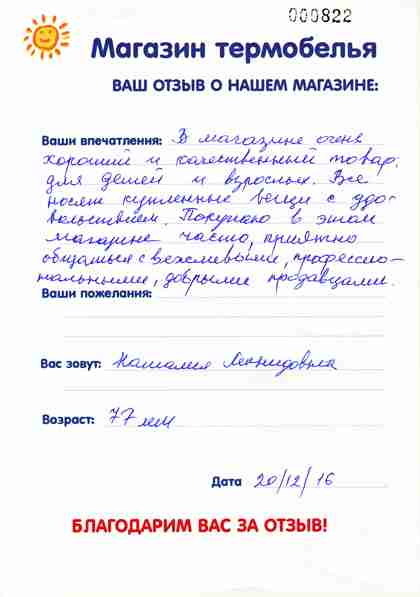 000822
Магазин термобелья
ВАШ ОТЗЫВ О НАШЕМ МАГАЗИНЕ:
Ваши впечатления: В магазине очень
хороший и качественный товар
для детей и взрослых. Все
носят купленные вещи с удо-
вольствием. Покупаю в этом
магазине часто, приятно
общаться с вежливыми, профессио-
нальными, добрыми продавцами.
Ваши пожелания:
Вас зовут: Наталия Леонидовна
Возраст: 77 лет
Дата 20/12/16
БЛАГОДАРИМ ВАС ЗА ОТЗЫВ!